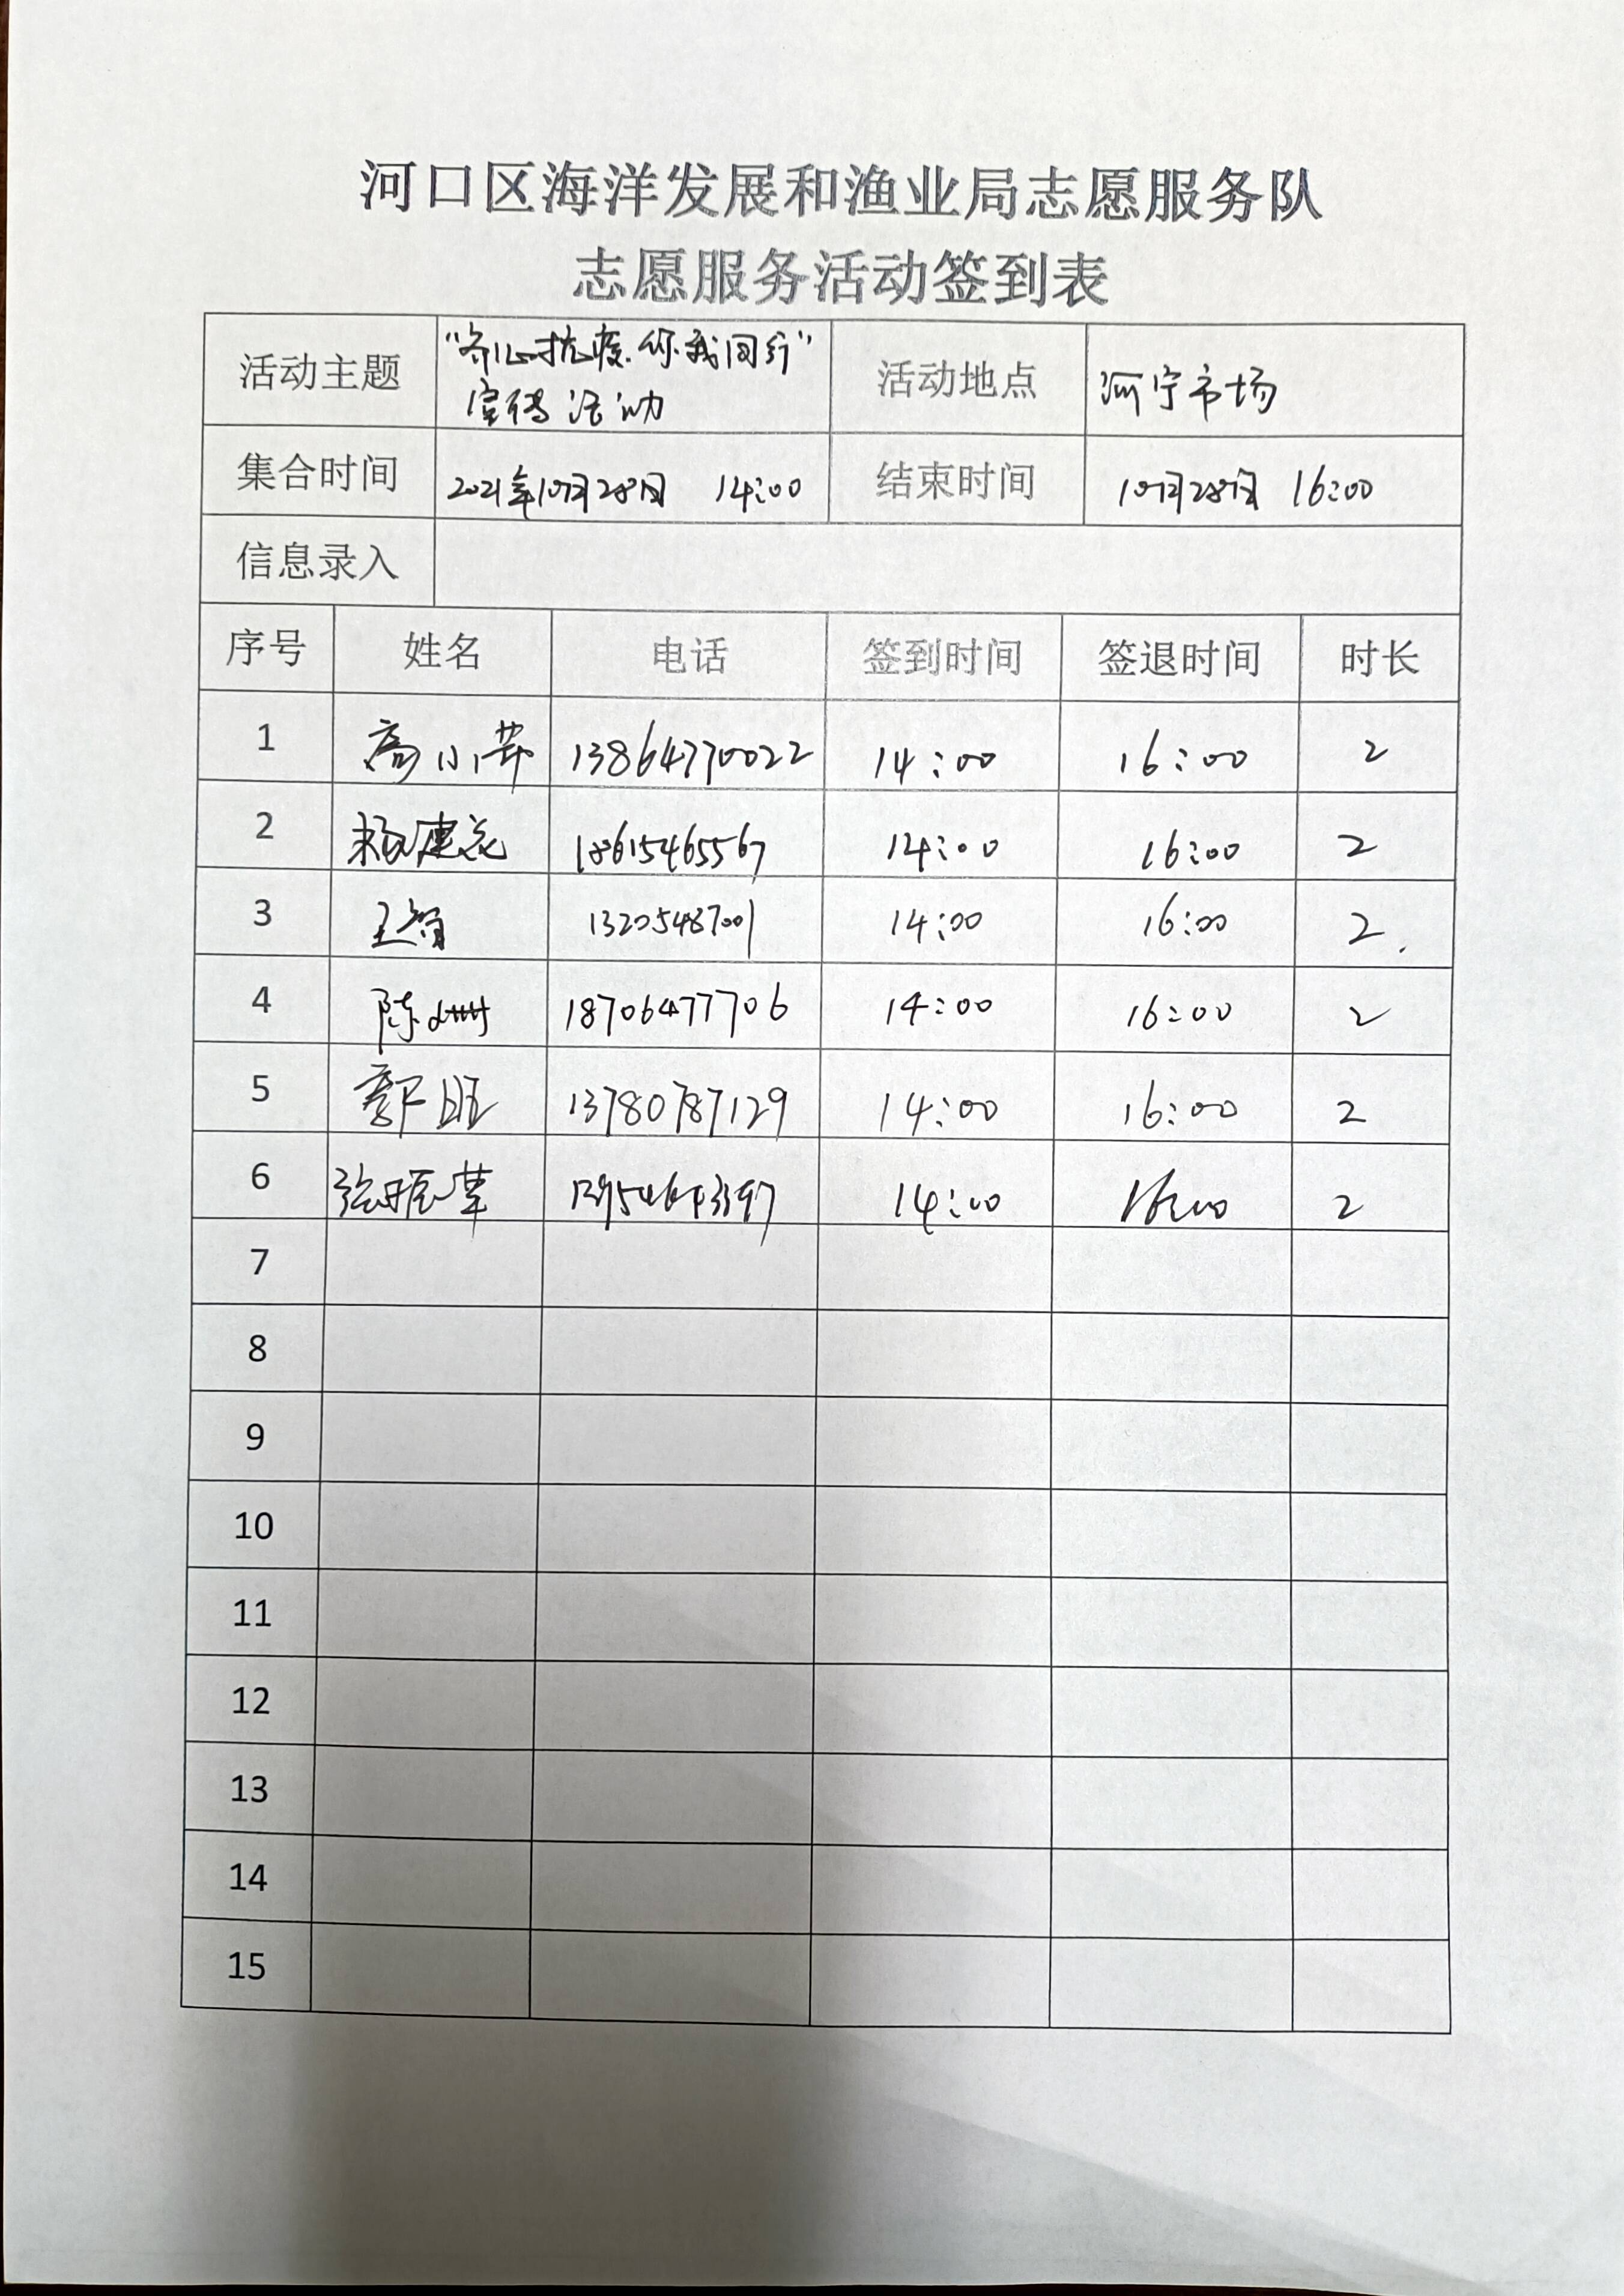 河口区海洋发展和渔业局志愿服务队
志愿服务活动签到表
活动主题 "齐心抗疫.你我同行" 宣传活动 活动地点 河宁市场
集合时间 2021年10月28日 14:00 结束时间 10月28日 16:00
信息录入
序号 姓名 电话 签到时间 签退时间 时长
1 高小 13864770022 14:00 16:00 2
2 杨建 18615465567 14:00 16:00 2
3 王 13205487001 14:00 16:00 2.
4 陈 18706477706 14:00 16:00 2
5 郭旺 13780787129 14:00 16:00 2
6 张振华 14:00 16:00 2
7
8
9
10
11
12
13
14
15